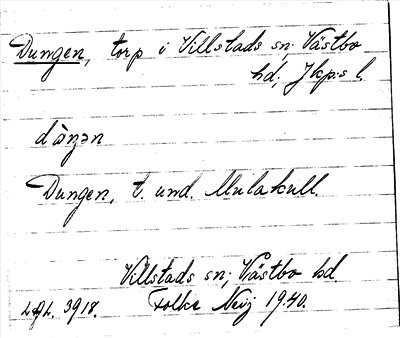 Dungen, torp i Villstads sn; Västbo
hd, Jkp:s l.
dàŋən
Dungen, t. und. Mulakull.
Villstads sn; Västbo hd.
Folke Neij 1940.
3918.